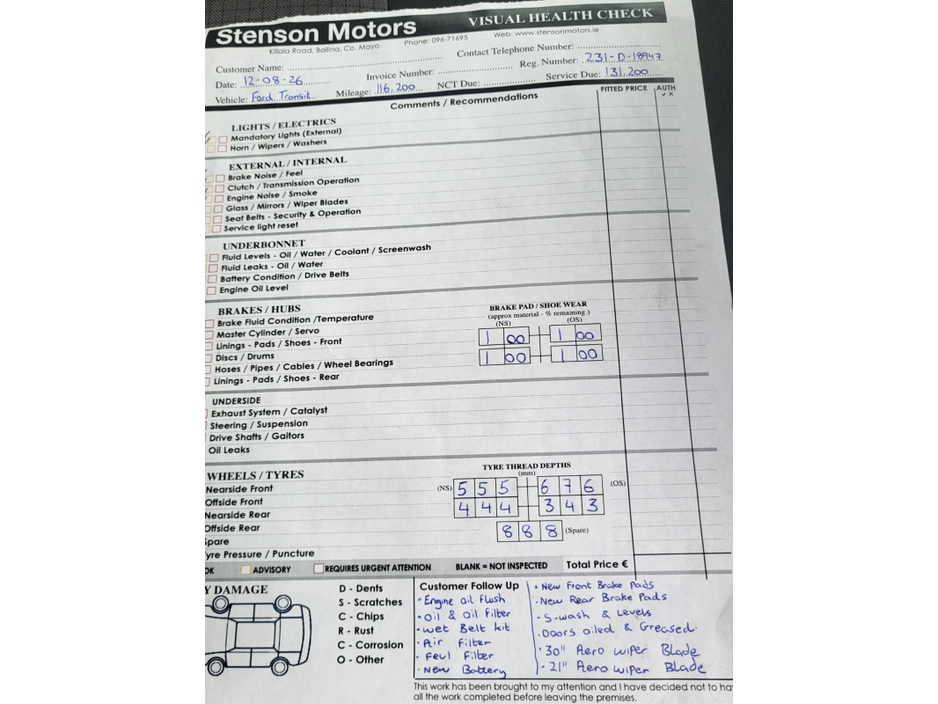 Stenson Motors
VISUAL HEALTH CHECK
Killala Road, Ballina, Co. Mayo.
Phone: 096-71695
Web: www.stensonmotors.ie
Customer Name:
Contact Telephone Number:
Date: 12-08-26
Invoice Number:
Reg. Number: 231-D-18947
Vehicle: Ford Transit
Mileage: 116,200
NCT Due:
Service Due: 131,200
Comments / Recommendations
FITTED PRICE
AUTH
✓ ✗
LIGHTS / ELECTRICS
Mandatory Lights (External)
Horn / Wipers / Washers
EXTERNAL / INTERNAL
Brake Noise / Feel
Clutch / Transmission Operation
Engine Noise / Smoke
Glass / Mirrors / Wiper Blades
Seat Belts - Security & Operation
Service light reset
UNDERBONNET
Fluid Levels - Oil / Water / Coolant / Screenwash
Fluid Leaks - Oil / Water
Battery Condition / Drive Belts
Engine Oil Level
BRAKES / HUBS
Brake Fluid Condition /Temperature
Master Cylinder / Servo
Linings - Pads / Shoes - Front
Discs / Drums
Hoses / Pipes / Cables / Wheel Bearings
Linings - Pads / Shoes - Rear
BRAKE PAD / SHOE WEAR
(approx material - % remaining )
(NS) (OS)
1 00 1 00
1 00 1 00
UNDERSIDE
Exhaust System / Catalyst
Steering / Suspension
Drive Shafts / Gaitors
Oil Leaks
WHEELS / TYRES
Nearside Front
Offside Front
Nearside Rear
Offside Rear
Spare
yre Pressure / Puncture
TYRE THREAD DEPTHS
(mm)
(NS) 5 5 5 6 7 6 (OS)
4 4 4 3 4 3
8 8 8 (Spare)
OK
ADVISORY
REQUIRES URGENT ATTENTION
BLANK = NOT INSPECTED
Total Price €
Y DAMAGE
D - Dents
S - Scratches
C - Chips
R - Rust
C - Corrosion
O - Other
Customer Follow Up
• Engine oil flush
• oil & oil filter
• wet Belt kit
• Air Filter
• Feul Filter
• New Battery
• New Front Brake Pads
• New Rear Brake Pads
• S-wash & Levels
• Doors oiled & Greased
• 30" Aero wiper Blade
• 21" Aero wiper Blade
This work has been brought to my attention and I have decided not to ha
all the work completed before leaving the premises.